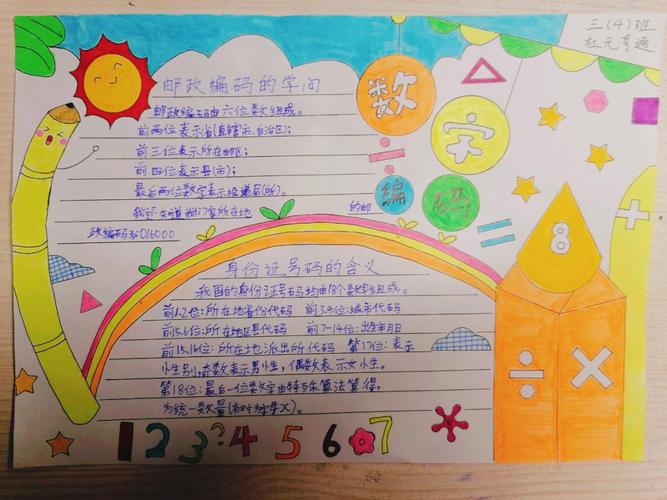 三(4)班
数字
编码
邮政编码的学问
邮政编码由六位数组成。
前两位表示省(直辖市、自治区);
前三位表示所在邮区;
前四位表示县(市);
最后两位数字表示投递局(所)。
我还知道我们家所在地的邮
政编码为016000
8
身份证号码的含义
我国的身份证号码均由18个数字组成。
前1.2位:所在地省份代码 前3.4位:城市代码
前5.6位:所在地区县代码 前7-14位:出生年月日
前15.16位:所在地派出所代码 第17位:表示
性别,奇数表示男生,偶数表示女生。
第18位:最后一位数字由特殊算法算得,
为统一数量(有时为字母X)。
÷ ×
1 2 3 ? 4 5 6 7